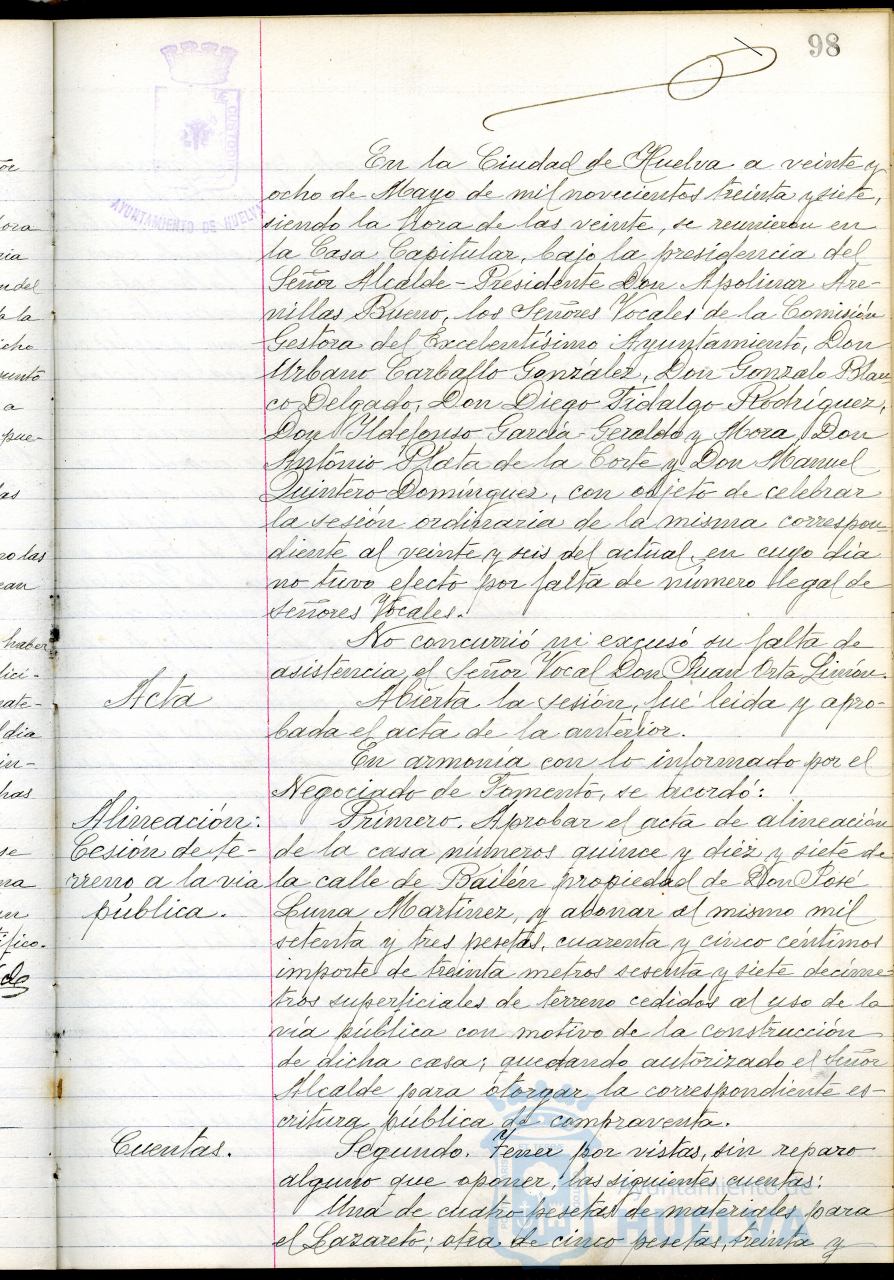 98
AYUNTAMIENTO DE HUELVA
En la Ciudad de Huelva a veinte y
ocho de Mayo de mil novecientos treinta y siete,
siendo la hora de las veinte, se reunieron en
la Casa Capitular, bajo la presidencia del
Señor Alcalde-Presidente Don Apolinar Are-
nillas Bueno, los Señores Vocales de la Comisión
Gestora del Excelentísimo Ayuntamiento, Don
Urbano Carballo González, Don Gonzalo Blan
co Delgado, Don Diego Fidalgo Rodríguez,
Don Ildefonso García-Geraldo y Mora, Don
Antonio Plata de la Corte y Don Manuel
Quintero Domínguez, con objeto de celebrar
la sesión ordinaria de la misma correspon-
diente al veinte y seis del actual, en cuyo día
no tuvo efecto por falta de número legal de
señores Vocales.
No concurrió ni excusó su falta de
asistencia el Señor Vocal Don Juan Orta Limón.
Acta
Abierta la sesión, fué leida y apro-
bada el acta de la anterior.
En armonía con lo informado por el
Negociado de Fomento, se acordó:
Alineación:
Cesión de te-
rreno a la via
pública.
Primero. Aprobar el acta de alineación
de la casa números quince y diez y siete de
la calle de Bailén propiedad de Don José
Luna Martínez, y abonar al mismo mil
setenta y tres pesetas, cuarenta y cinco céntimos
importe de treinta metros sesenta y siete decíme-
tros superficiales de terreno cedidos al uso de la
vía pública con motivo de la construcción
de dicha casa; quedando autorizado el Señor
Alcalde para otorgar la correspondiente es-
critura pública de compraventa.
Cuentas.
Segundo. Tener por vistas, sin reparo
alguno que oponer, las siguientes cuentas:
Una de cuatro pesetas de materiales para
el Lazareto; otra de cinco pesetas, treinta y
Ayuntamiento de
HUELVA